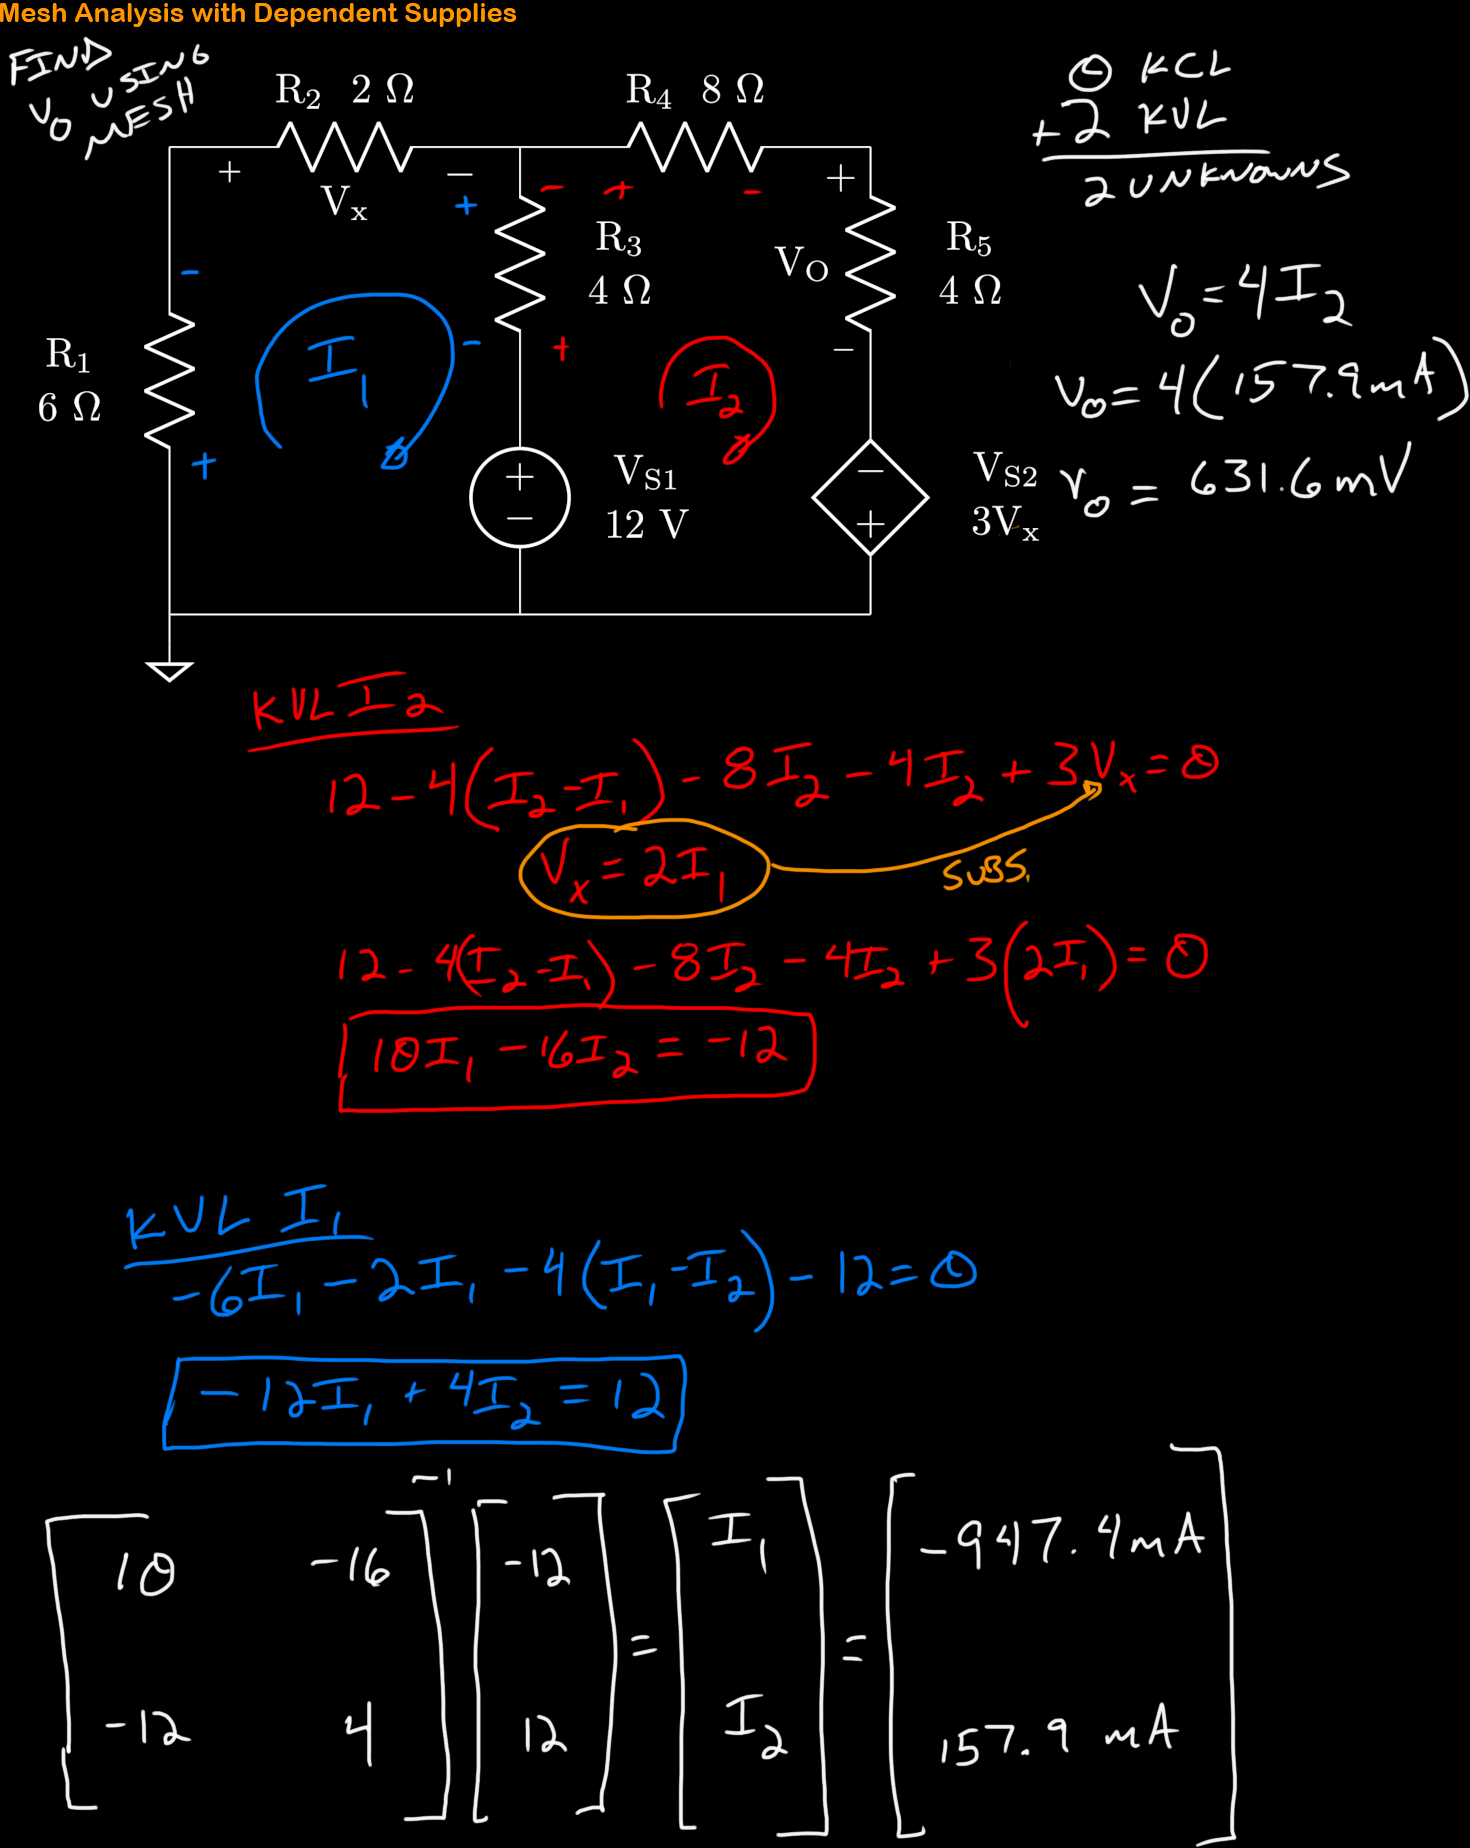 Mesh Analysis with Dependent Supplies
FIND
V₀ USING
MESH
R₂ 2 Ω
R₄ 8 Ω
+ Vₓ −
+ − − + − +
R₃
4 Ω
V_O
R₅
4 Ω
−
R₁
6 Ω
I₁
− +
I₂
−
+
+
−
V_S1
12 V
−
+
V_S2
3Vₓ
0 KCL
+2 KUL
2 UNKNOWNS
V₀ = 4I₂
V₀ = 4(157.9mA)
V₀ = 631.6mV
KVL I₂
12 − 4(I₂ − I₁) − 8I₂ − 4I₂ + 3Vₓ = 0
Vₓ = 2I₁
SUBS.
12 − 4(I₂ − I₁) − 8I₂ − 4I₂ + 3(2I₁) = 0
10I₁ − 16I₂ = −12
KVL I₁
−6I₁ − 2I₁ − 4(I₁ − I₂) − 12 = 0
−12I₁ + 4I₂ = 12
[10 −16]⁻¹ [−12] = [I₁] = [−947.4mA]
[−12 4] [12] [I₂] [157.9 mA]